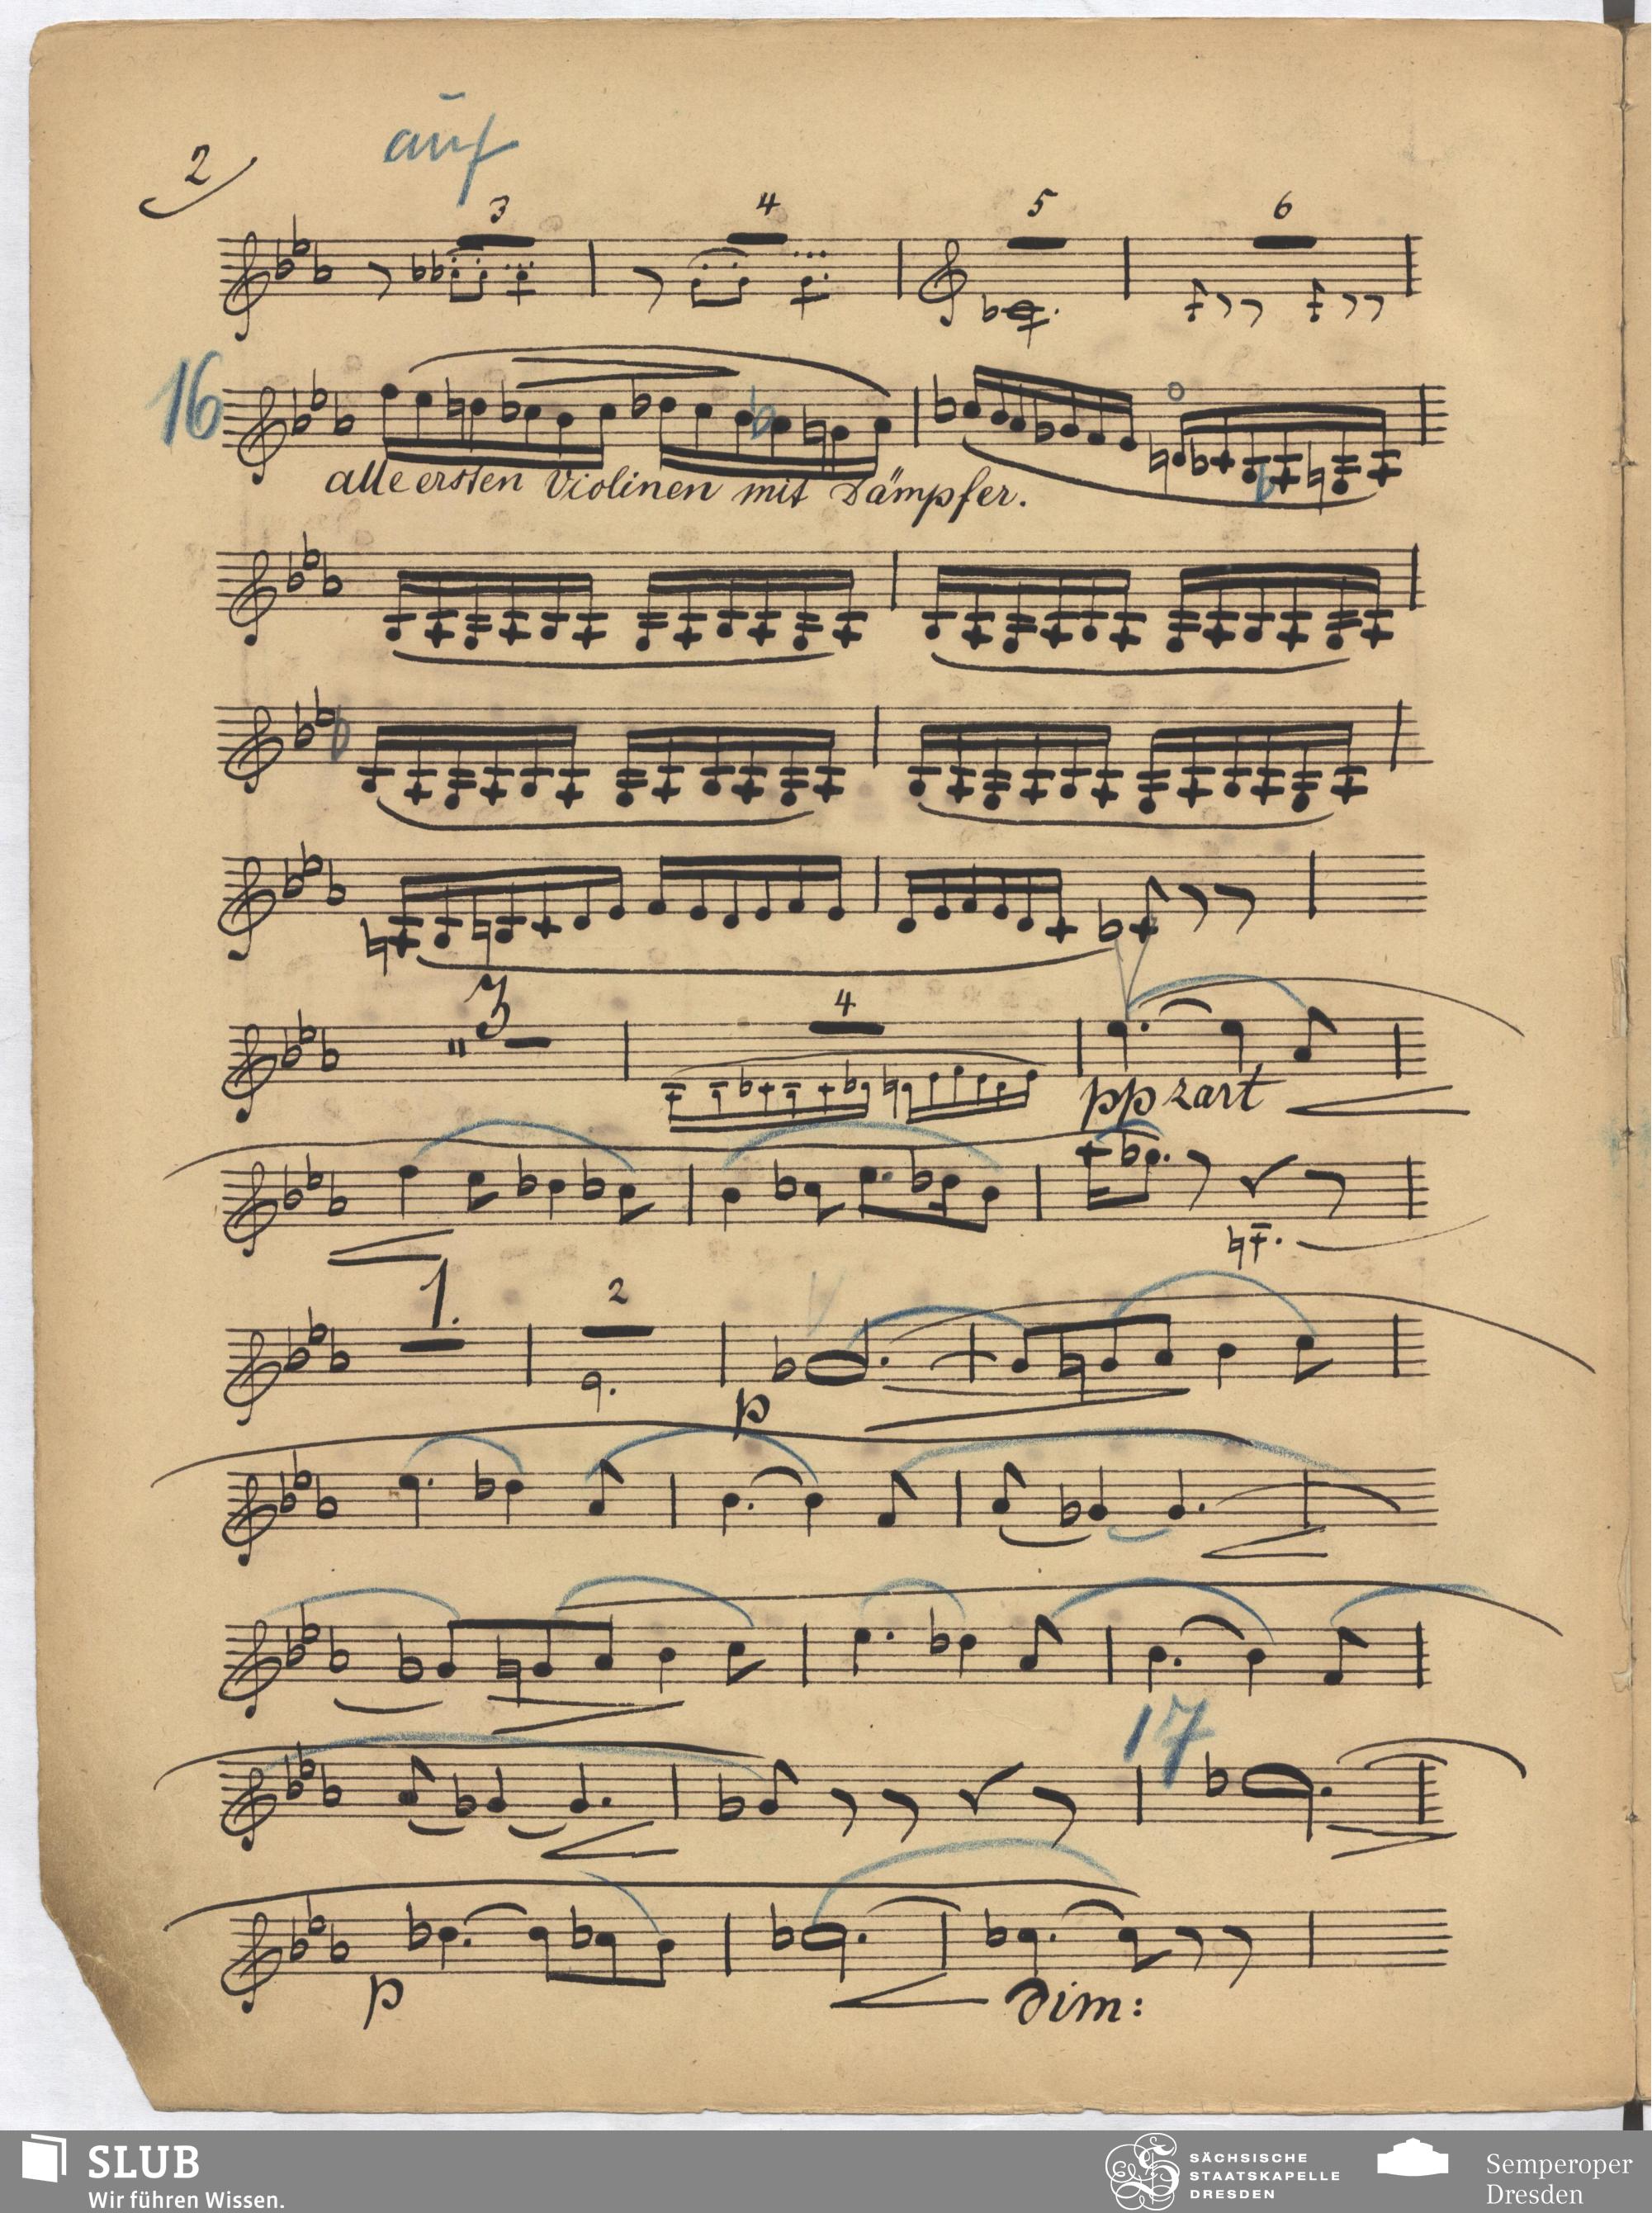 2
auf
3 4 5 6
16
alle ersten Violinen mit Dämpfer.
3 4
pp zart
1. 2
p
17
p dim:
SLUB
Wir führen Wissen.
SÄCHSISCHE
STAATSKAPELLE
DRESDEN
Semperoper
Dresden